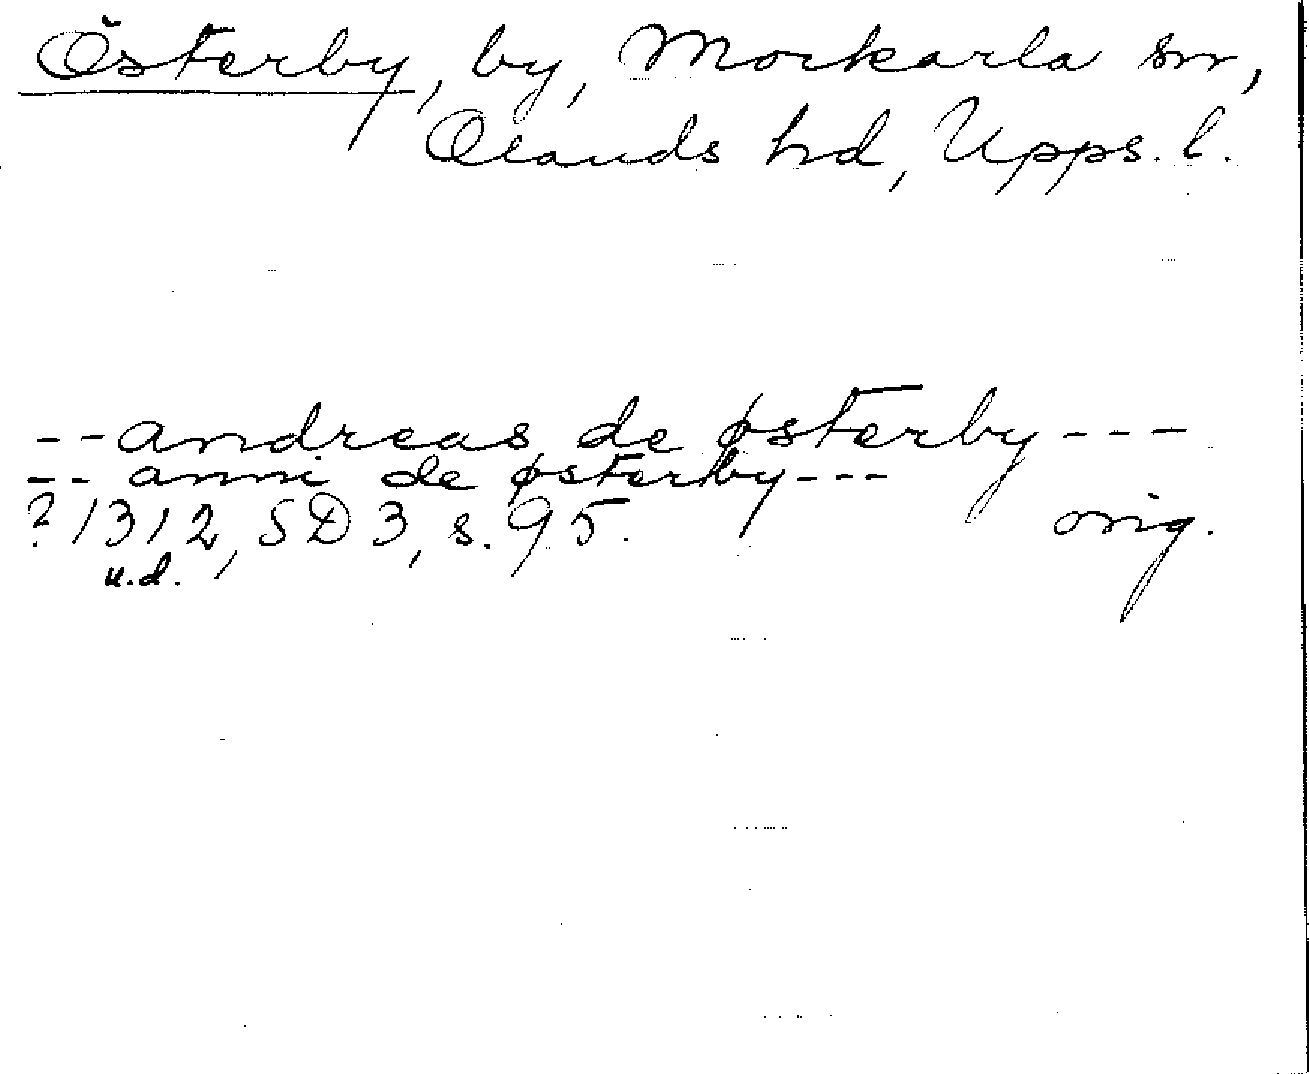 Österby, by, Morkarla sn,
Olands hd, Upps. l.
-- andreas de østerby ---
-- anni de østerby ---
? 1312, SD 3, s. 95. orig.
u.d.